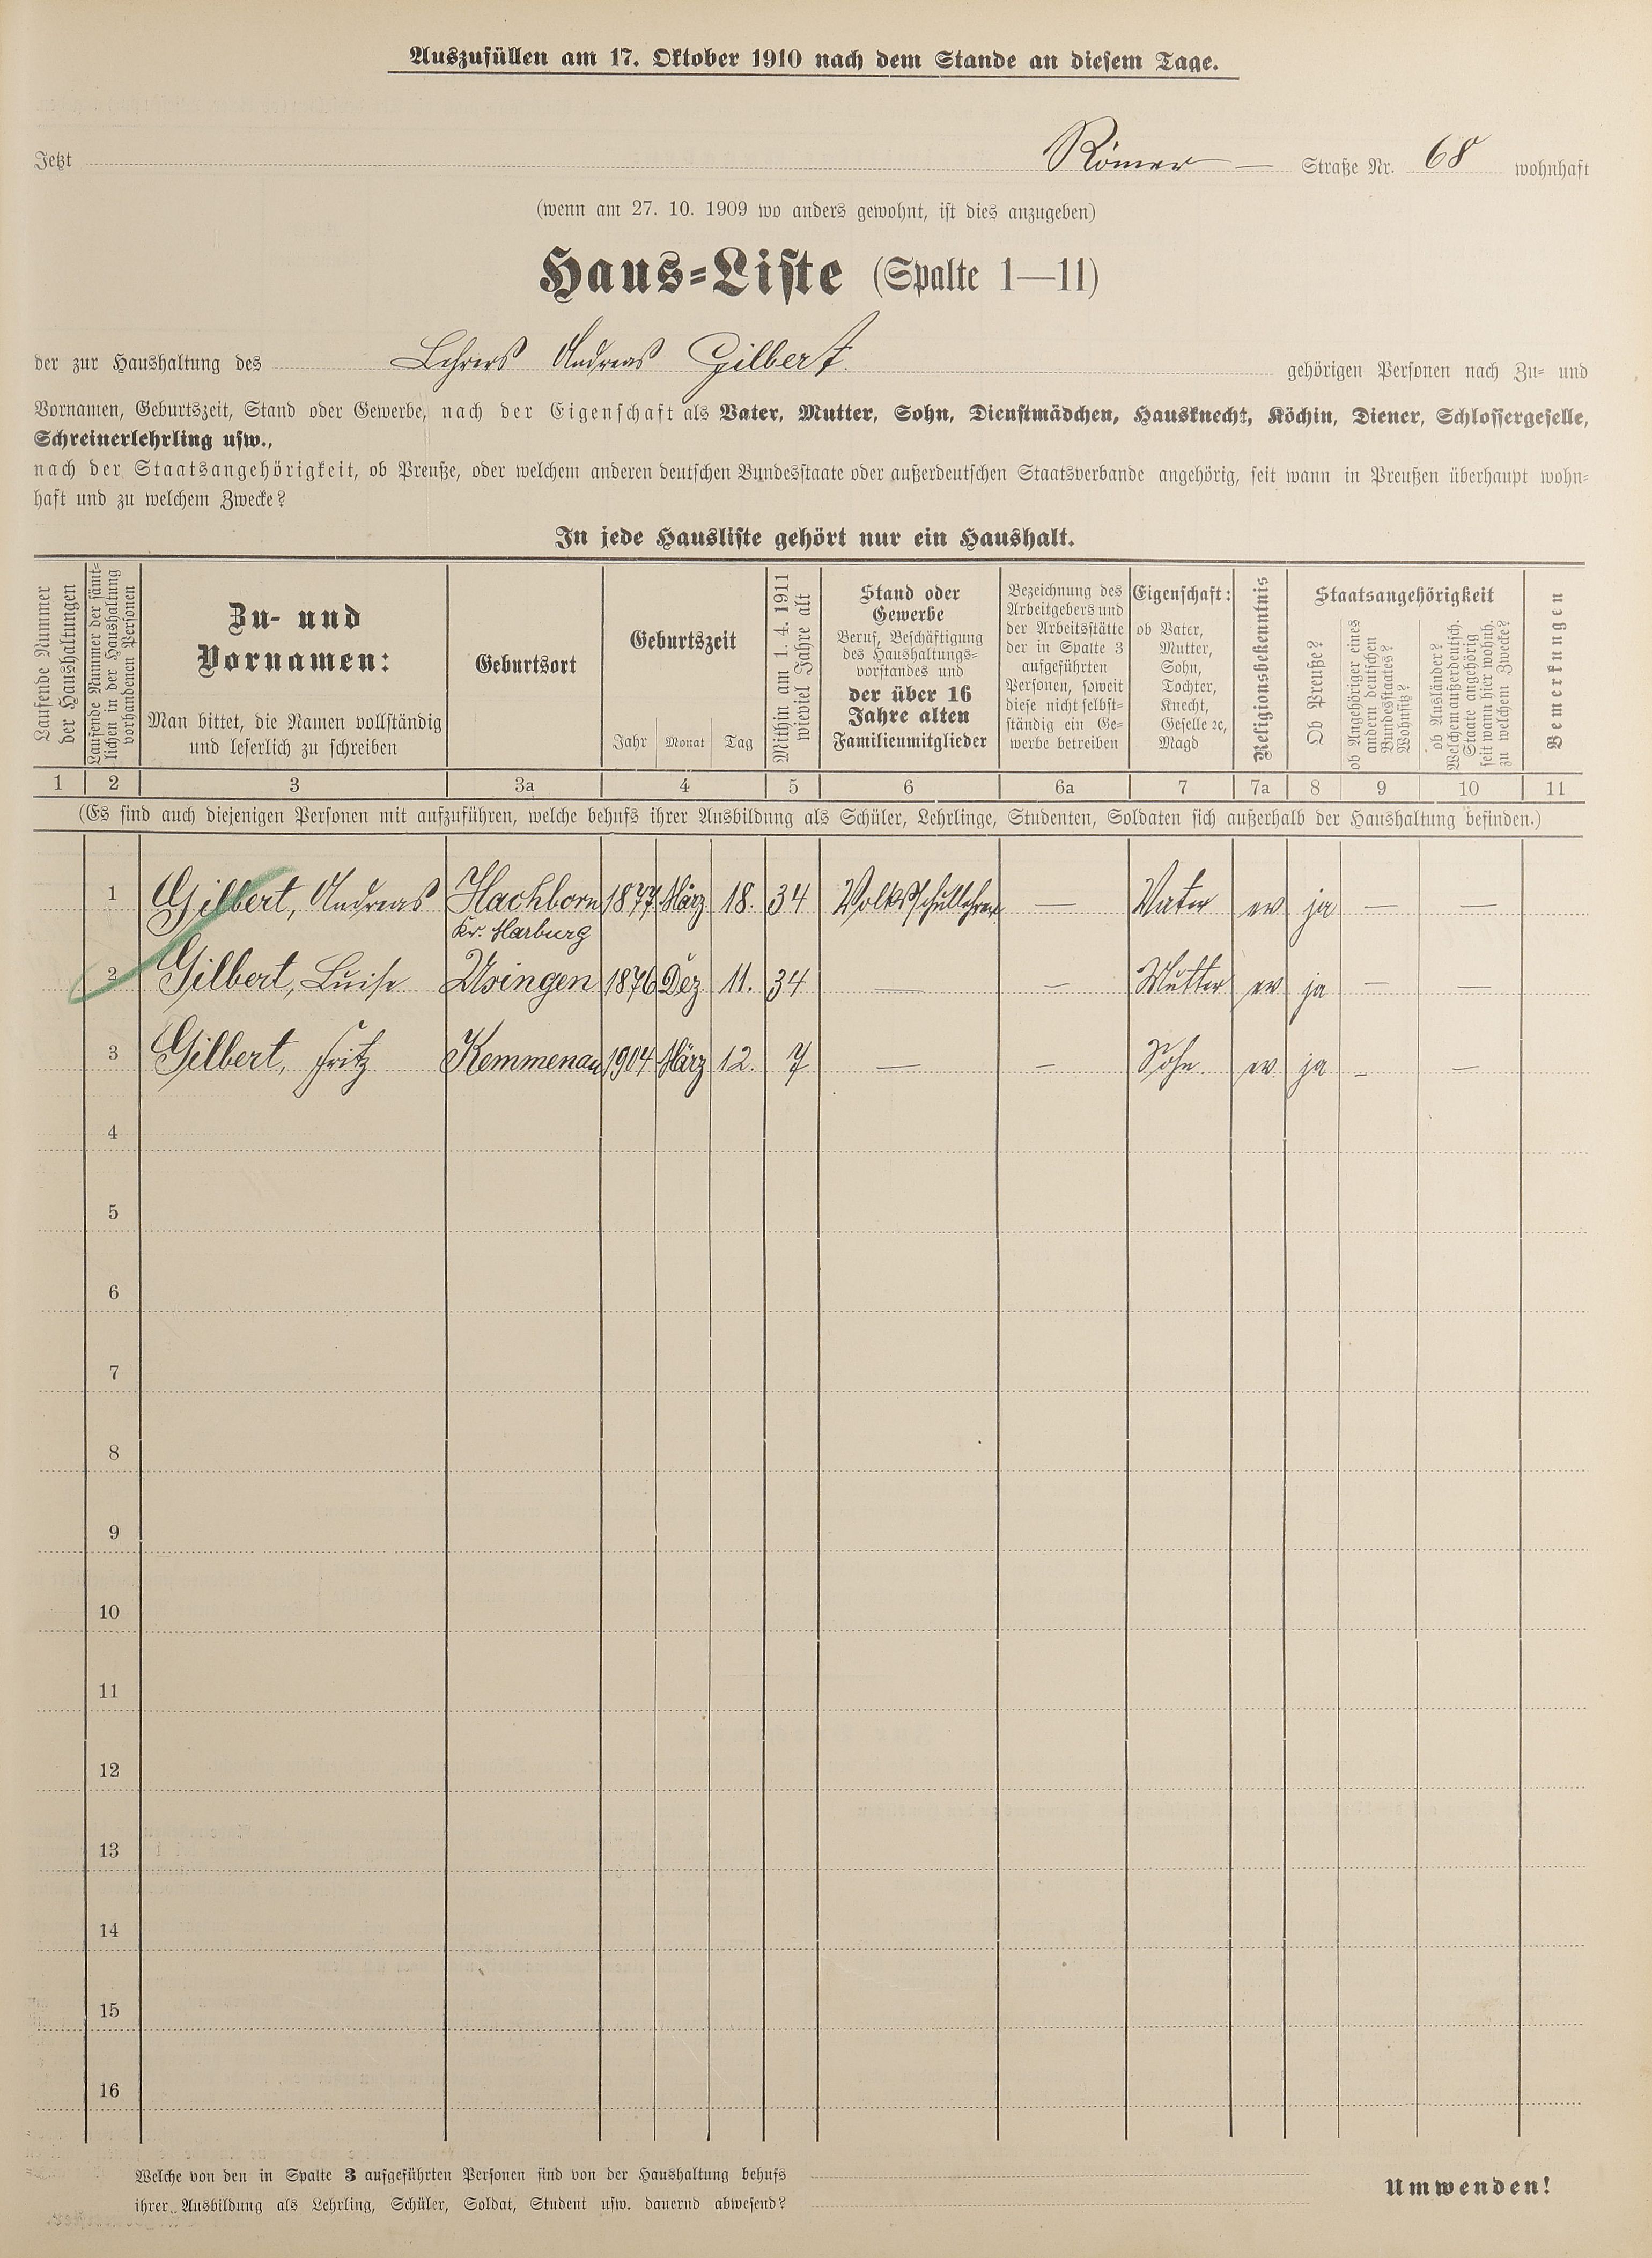 Auszufüllen am 17. Oktober 1910 nach dem Stande an diesem Tage.
Jetzt Römer — Straße Nr. 68 wohnhaft
(wenn am 27. 10. 1909 wo anders gewohnt, ist dies anzugeben)
Haus-Liste (Spalte 1—11)
der zur Haushaltung des Lehrers Andreas Gilbert gehörigen Personen nach Zu- und
Vornamen, Geburtszeit, Stand oder Gewerbe, nach der Eigenschaft als Vater, Mutter, Sohn, Dienstmädchen, Hausknecht, Köchin, Diener, Schlossergeselle,
Schreinerlehrling usw.,
nach der Staatsangehörigkeit, ob Preuße, oder welchem anderen deutschen Bundesstaate oder außerdeutschen Staatsverbande angehörig, seit wann in Preußen überhaupt wohn-
haft und zu welchem Zwecke?
In jede Hausliste gehört nur ein Haushalt.
Laufende Nummer
der Haushaltungen
Laufende Nummer der sämt-
lichen in der Haushaltung
vorhandenen Personen
Zu- und
Vornamen:
Man bittet, die Namen vollständig
und leserlich zu schreiben
Geburtsort
Geburtszeit
Jahr Monat Tag
Mithin am 1. 4. 1911
wieviel Jahre alt
Stand oder
Gewerbe
Beruf, Beschäftigung
des Haushaltungs-
vorstandes und
der über 16
Jahre alten
Familienmitglieder
Bezeichnung des
Arbeitgebers und
der Arbeitsstätte
der in Spalte 3
aufgeführten
Personen, soweit
diese nicht selbst-
ständig ein Ge-
werbe betreiben
Eigenschaft:
ob Vater,
Mutter,
Sohn,
Tochter,
Knecht,
Geselle ꝛc,
Magd
Religionsbekenntnis
Staatsangehörigkeit
Ob Preuße?
ob Angehöriger eines
andern deutschen
Bundesstaates?
Wohnsitz?
ob Ausländer?
Welchem außerdeutsch.
Staate angehörig
seit wann hier wohnh.
zu welchem Zwecke?
Bemerkungen
1 2 3 3a 4 5 6 6a 7 7a 8 9 10 11
(Es sind auch diejenigen Personen mit aufzuführen, welche behufs ihrer Ausbildung als Schüler, Lehrlinge, Studenten, Soldaten sich außerhalb der Haushaltung befinden.)
1 Gilbert, Andreas Hachborn 1877 März 18. 34 Volksschullehrer — Vater ev ja — —
Kr. Marburg
2 Gilbert, Luise Usingen 1876 Dez 11. 34 — — Mutter ev ja — —
3 Gilbert, Fritz Kemmenau 1904 März 12. 7 — — Sohn ev ja — —
4
5
6
7
8
9
10
11
12
13
14
15
16
Welche von den in Spalte 3 aufgeführten Personen sind von der Haushaltung behufs
ihrer Ausbildung als Lehrling, Schüler, Soldat, Student usw. dauernd abwesend?
Umwenden!